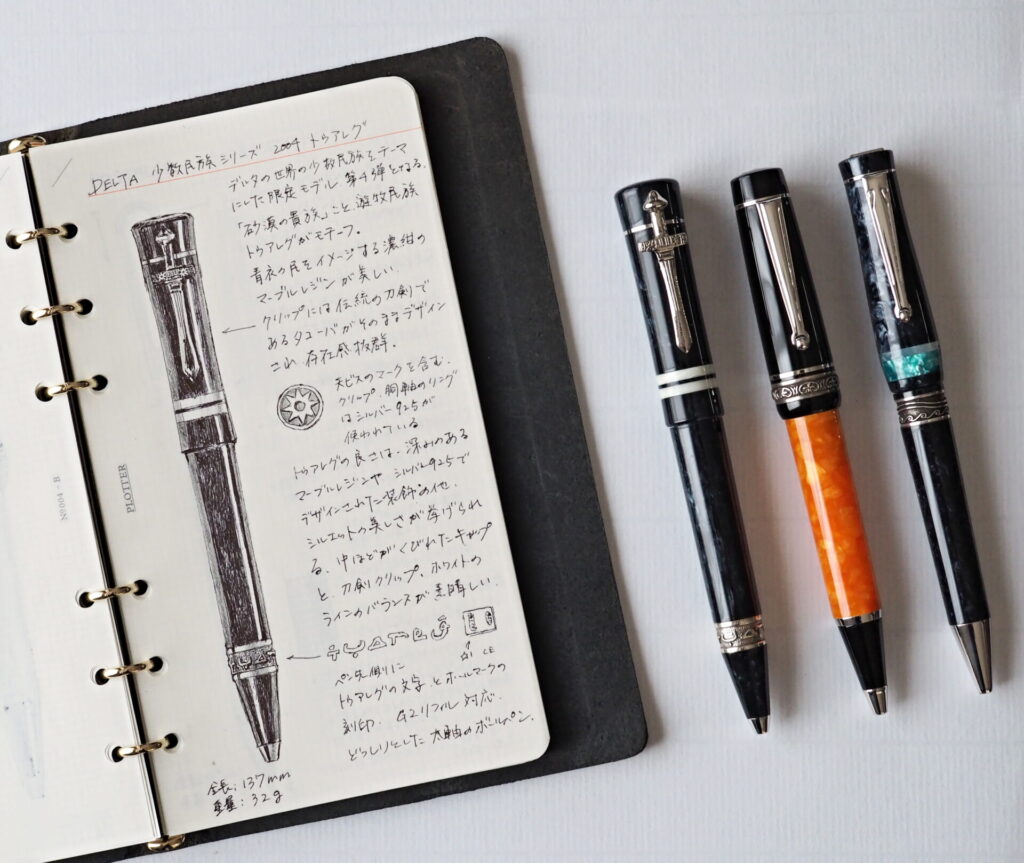 DELTA 少数民族シリーズ 2004 トゥアレグ
デルタの世界の少数民族をテーマ
にした限定モデル 第4弾となる。
「砂漠の貴族」こと遊牧民族
トゥアレグがモチーフ。
青衣の民をイメージする濃紺の
マーブルレジンが美しい。
クリップには伝統の刀剣で
あるタコーバがそのままデザイン
され 存在感抜群。
天ビスのマークを含む、
クリップ、胴軸のリング
はシルバー925が
使われている。
トゥアレグの良さは、深みのある
マーブルレジンやシルバー925で
デザインされた装飾の他、
シルエットの美しさが挙げられ
る。中ほどがくびれたキャップ
と、刀剣クリップ、ホワイトの
ラインのバランスが素晴しい。
ペン先側に
トゥアレグの文字とホールマークの
刻印。G2リフィル対応。
どっしりとした太軸のボールペン。
全長：137mm
重量：32g
PLOTTER